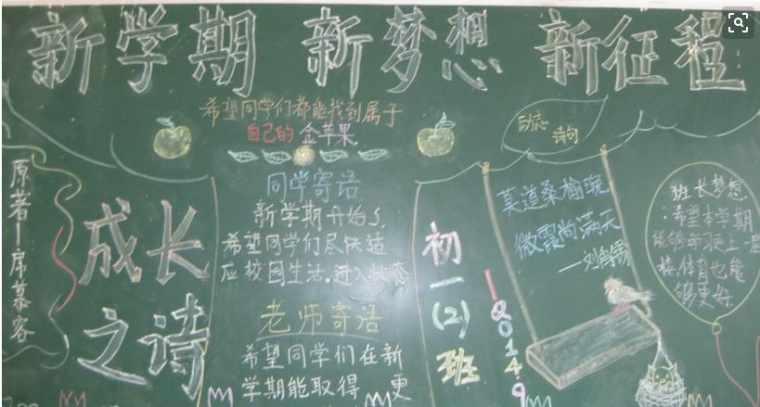 新学期 新梦想 新征程
希望同学们都能找到属于
自己的 金苹果
励志
诗句
原著—席慕容
成长
之诗
同学寄语
新学期开始了,
希望同学们尽快适
应校园生活,进入状态
老师寄语
希望同学们在新
学期能取得 更
初一(2)班
莫道桑榆晚
微霞尚满天
班长梦想
:希望本学期
能够
体育也能
够更好